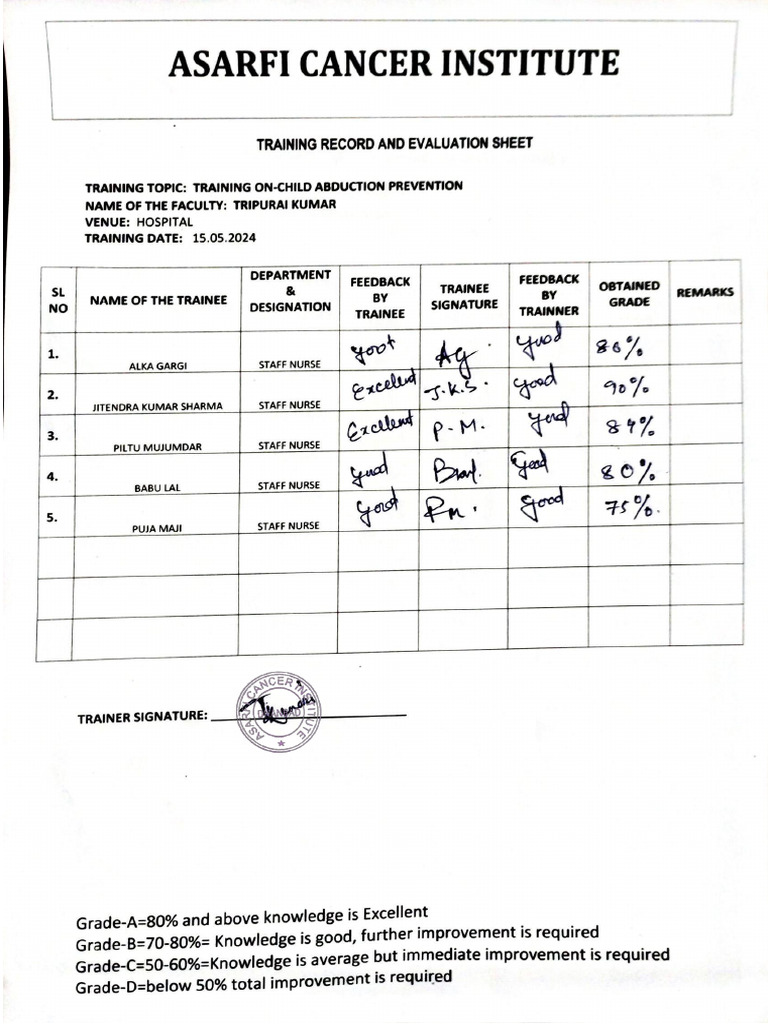 ASARFI CANCER INSTITUTE
TRAINING RECORD AND EVALUATION SHEET
TRAINING TOPIC: TRAINING ON-CHILD ABDUCTION PREVENTION
NAME OF THE FACULTY: TRIPURAI KUMAR
VENUE: HOSPITAL
TRAINING DATE: 15.05.2024
SL NO NAME OF THE TRAINEE DEPARTMENT & DESIGNATION FEEDBACK BY TRAINEE TRAINEE SIGNATURE FEEDBACK BY TRAINNER OBTAINED GRADE REMARKS
1. ALKA GARGI STAFF NURSE good AG good
2. JITENDRA KUMAR SHARMA STAFF NURSE Excellent J.K.S. good 90%
3. PILTU MUJUMDAR STAFF NURSE Excellent P.M. good
4. BABU LAL STAFF NURSE good Good 80%
5. PUJA MAJI STAFF NURSE good P.M. good 75%.
TRAINER SIGNATURE:
ASARFI CANCER INSTITUTE
DHANBAD
Grade-A=80% and above knowledge is Excellent
Grade-B=70-80%= Knowledge is good, further improvement is required
Grade-C=50-60%=Knowledge is average but immediate improvement is required
Grade-D=below 50% total improvement is required